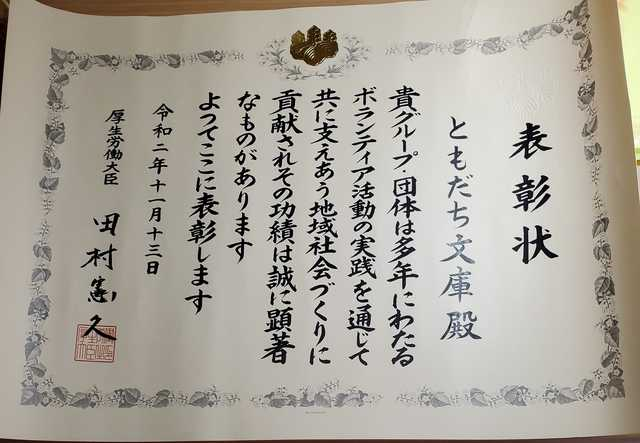 表彰状
ともだち文庫殿
貴グループ・団体は多年にわたる
ボランティア活動の実践を通じて
共に支えあう地域社会づくりに
貢献されその功績は誠に顕著
なものがあります
よってここに表彰します
令和二年十一月十三日
厚生労働大臣
田村憲久